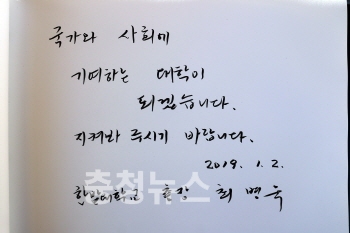 국가와 사회에
기여하는 대학이
되겠습니다.
지켜봐 주시기 바랍니다.
2019. 1. 2.
한밭대학교 총장 최 병 욱
충청뉴스